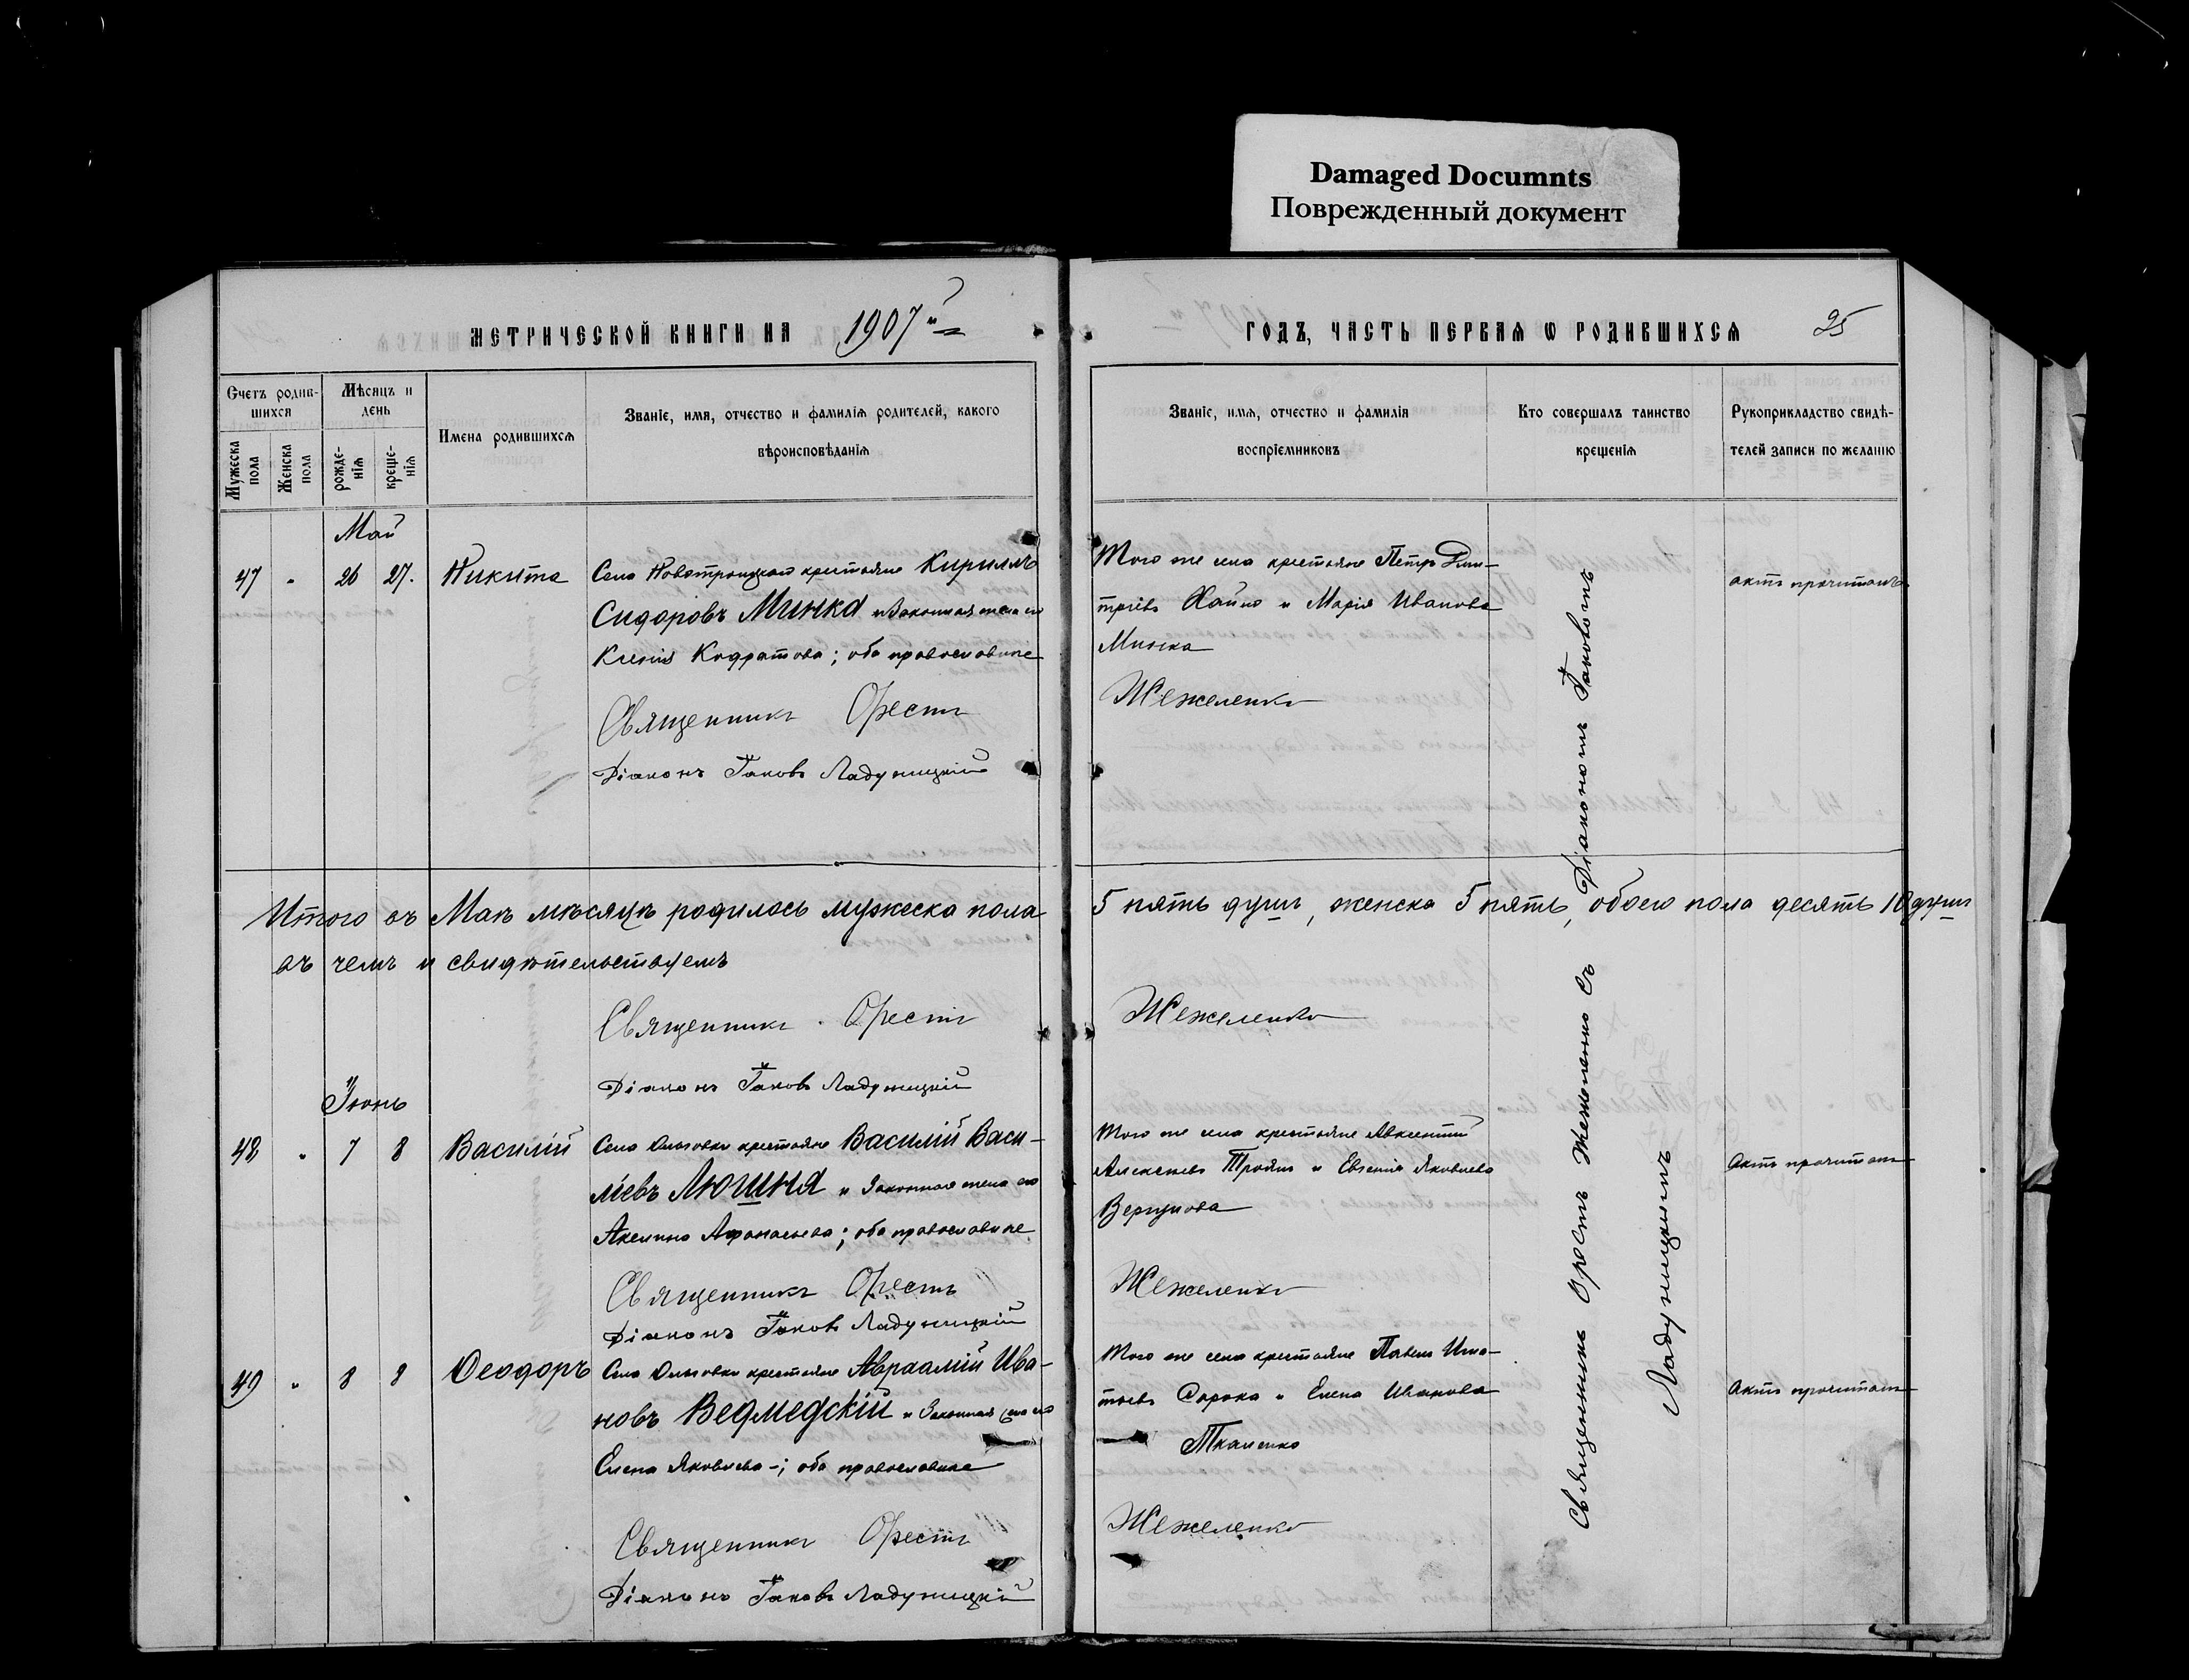 Damaged Documnts
Поврежденный документ
МЕТРИЧЕСКОЙ КНИГИ НА 1907й
ГОДЪ, ЧАСТЬ ПЕРВАЯ Ѡ РОДИВШИХСЯ 25
Счетъ родив-
шихся
Мужеска
пола
Женска
пола
Мѣсяцъ и
день
рожде-
нія
креще-
нія
Имена родившихся
Званіе, имя, отчество и фамилія родителей, какого
вѣроисповѣданія
Званіе, имя, отчество и фамилія
воспріемниковъ
Кто совершалъ таинство
крещенія
Рукоприкладство свидѣ-
телей записи по желанію
Май
47 " 26 27. Никита
Села Новотроицкаго крестьяне Кириллъ
Сидоровъ Минка и Законная жена его
Кодратова; оба православные
Священникъ Орестъ
Діаконъ Іаковъ Ладужицкій
Того же села крестьяне Петръ Дми-
тріевъ Хайло и Марія Иванова
Минка
Жежеленко
актъ прочитанъ
Итого въ Маѣ мѣсяцѣ родилось мужеска пола 5 пять душъ, женска 5 пять, обоего пола десять 10 душъ
въ чемъ и свидѣтельствуемъ
Священникъ Орестъ Жежеленко
Діаконъ Іаковъ Ладужицкій
Іюнь
48 " 7 8 Василій
Села Ольговки крестьяне Василій Васи-
ліевъ Люшня и Законная жена его
Акелина Афанасьева; оба православные
Священникъ Орестъ
Діаконъ Іаковъ Ладужицкій
Того же села крестьяне Авксентій
Алексѣевъ Троянъ и Евгенія Яковлева
Вергунова
Жежеленко
Актъ прочитанъ
49 " 8 8 Ѳеодоръ
Села Ольговки крестьяне Авраамій Ива-
новъ Ведмедскій и Законная жена его
Елена Яковлева -; оба православные
Священникъ Орестъ
Діаконъ Іаковъ Ладужицкій
Того же села крестьяне Павелъ Игна-
тьевъ Сорока и Елена Иванова
Ткаченко
Жежеленко
Актъ прочитанъ
Священникъ Орестъ Жежеленко съ Діакономъ Іаковомъ
Ладужицкимъ